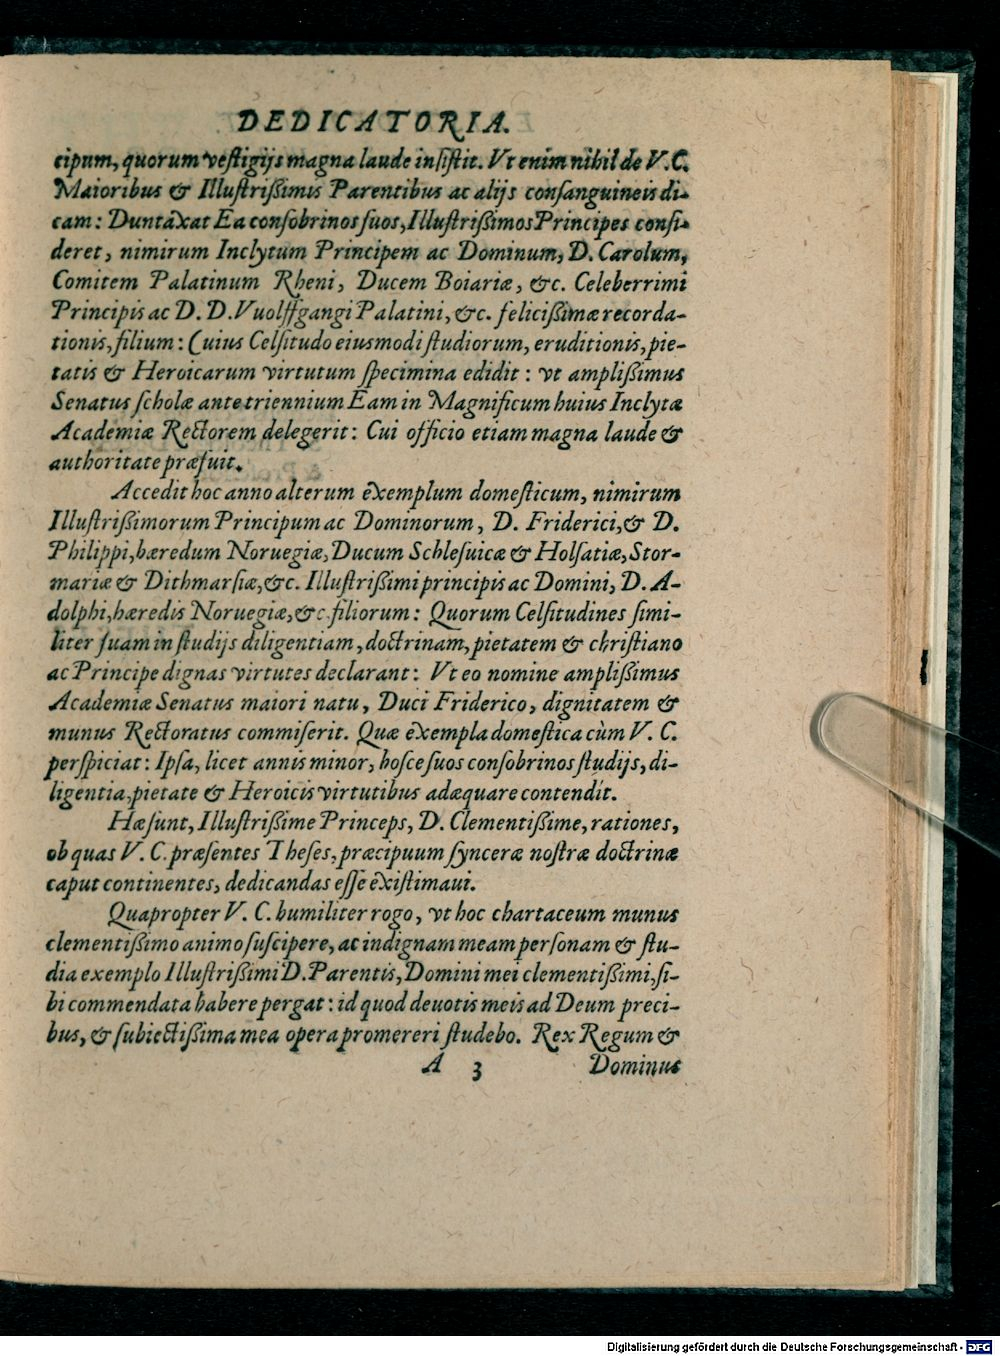 DEDICATORIA.
cipum, quorum vestigijs magna laude insistit. Vt enim nihil de V.C.
Maioribus & Illustrißimis Parentibus ac alijs consanguineis di-
cam: Duntaxat Ea consobrinos suos, Illustrißimos Principes consi-
deret, nimirum Inclytum Principem ac Dominum, D. Carolum,
Comitem Palatinum Rheni, Ducem Boiariæ, &c. Celeberrimi
Principis ac D. D. Vuolffgangi Palatini, &c. felicißimæ recorda-
tionis, filium: Cuius Celsitudo eiusmodi studiorum, eruditionis, pie-
tatis & Heroicarum virtutum specimina edidit: vt amplißimus
Senatus scholæ ante triennium Eam in Magnificum huius Inclytæ
Academiæ Rectorem delegerit: Cui officio etiam magna laude &
authoritate præfuit.
Accedit hoc anno alterum exemplum domesticum, nimirum
Illustrißimorum Principum ac Dominorum, D. Friderici, & D.
Philippi, hæredum Noruegiæ, Ducum Schlesuicæ & Holsatiæ, Stor-
mariæ & Dithmarsiæ, &c. Illustrißimi principis ac Domini, D. A-
dolphi, hæredis Noruegiæ, &c. filiorum: Quorum Celsitudines simi-
liter suam in studijs diligentiam, doctrinam, pietatem & christiano
ac Principe dignas virtutes declarant: Vt eo nomine amplißimus
Academiæ Senatus maiori natu, Duci Friderico, dignitatem &
munus Rectoratus commiserit. Quæ exempla domestica cùm V. C.
perspiciat: Ipsa, licet annis minor, hosce suos consobrinos studijs, di-
ligentia, pietate & Heroicis virtutibus adæquare contendit.
Hæ sunt, Illustrißime Princeps, D. Clementißime, rationes,
ob quas V. C. præsentes Theses, præcipuum synceræ nostræ doctrinæ
caput continentes, dedicandas esse existimaui.
Quapropter V. C. humiliter rogo, vt hoc chartaceum munus
clementißimo animo suscipere, ac indignam meam personam & stu-
dia exemplo Illustrißimi D. Parentis, Domini mei clementißimi, si-
bi commendata habere pergat: id quod deuotis meis ad Deum preci-
bus, & subiectißima mea opera promereri studebo. Rex Regum &
A 3 Dominus
Digitalisierung gefördert durch die Deutsche Forschungsgemeinschaft - DFG